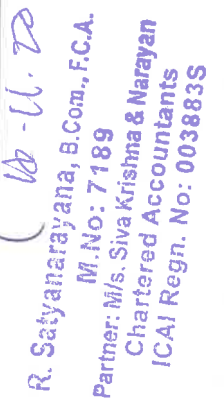 R. Satyanarayana, B.Com., F.C.A.
M.No: 7189
Partner: M/s. Siva Krishna & Narayan
Chartered Accountants
ICAI Regn. No: 003883S